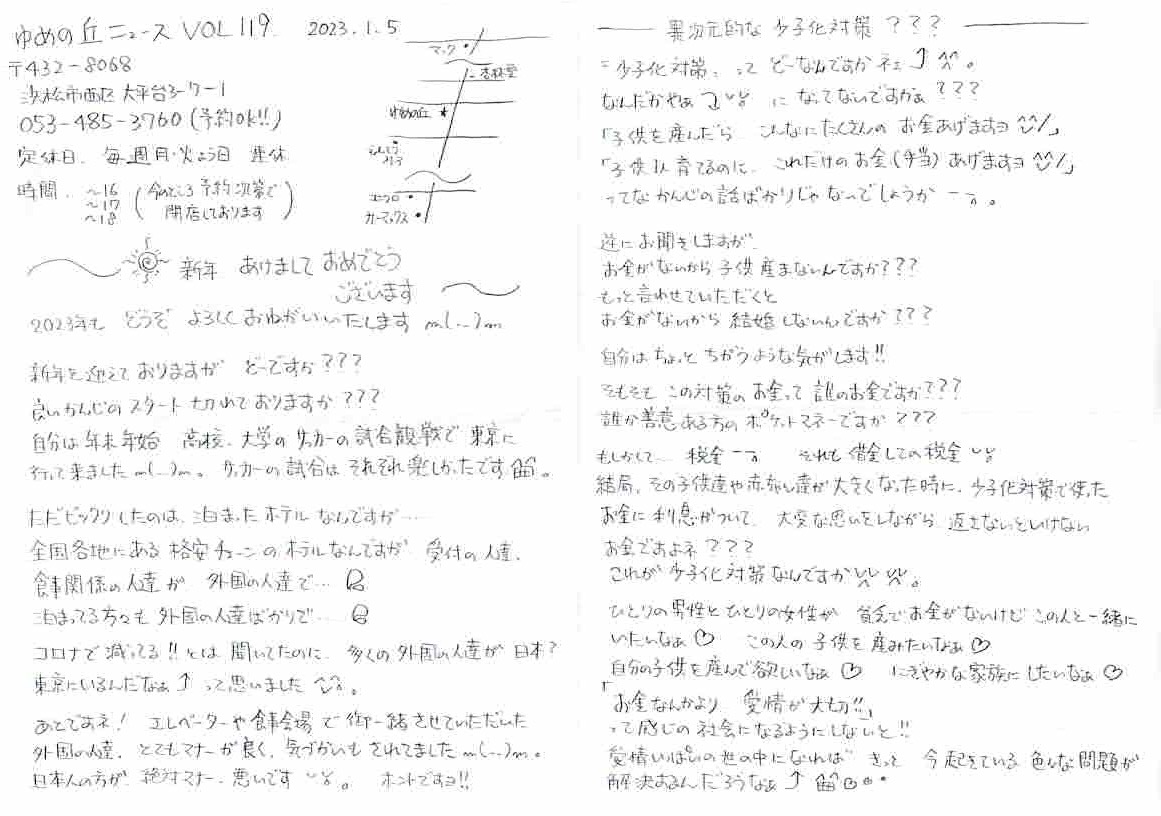 ゆめの丘ニュース VOL 119 2023.1.5
〒432-8068
浜松市西区大平台3-7-1
053-485-3760 (予約OK!!)
定休日、毎週月・火よう日 連休
時間、 ~16
~17
~18
(今のところ予約次第で
閉店しております)
マック
杏林堂
ゆめの丘 ★
エンチョー
カーマックス
新年 あけまして おめでとう
ございます
2023年も どうぞ よろしく おねがいいたします m(__)m
新年を迎えて おりますが どーですか???
良いかんじのスタート切れておりますか???
自分は年末年始 高校、大学のサッカーの試合観戦で東京に
行って来ました m(__)m。 サッカーの試合は それぞれ楽しかったです 。
ただビックリしたのは、泊まったホテルなんですが…
全国各地にある 格安チェーンのホテルなんですが 受付の人達、
食事関係の人達が 外国の人達で…
泊まってる方々も 外国の人達ばかりで…
コロナで減ってる!!とは 聞いてたのに、多くの外国の人達が 日本?
東京にいるんだなぁ↑ って思いました ^^。
あとですネ! エレベーターや食事会場で 御一緒させていただいた
外国の人達、とてもマナーが良く、気づかいも されてました m(__)m。
日本人の方が、絶対マナー、悪いです 。 ホントですヨ!!
異次元的な 少子化対策 ???
「少子化対策」って どーなんですかネェ↑ ^^。
なんだかやぁ に なってないですかぁ???
「子供を産んだら こんなにたくさんの お金あげますヨ ^^/」
「子供 育てるのに、これだけのお金(手当)あげますヨ ^^/」
ってな かんじの話ばかりじゃ ないでしょうか 。
逆に お聞きしますが、
お金がないから 子供産まないんですか???
もっと言わせていただくと
お金がないから 結婚しないんですか???
自分は ちょっと ちがうような気がします!!
そもそも この対策の お金って 誰のお金ですか???
誰か善意ある方の ポケットマネーですか???
もしかして… 税金 それも 借金しての税金
結局、その子供達や赤ちゃん達が 大きくなった時に、少子化対策で使った
お金に利息がついて、大変な思いをしながら 返さないといけない
お金ですよネ???
これが 少子化対策なんですか 。
ひとりの男性とひとりの女性が 貧乏でお金がないけど この人と一緒に
いたいなぁ♡ この人の 子供を 産みたいなぁ♡
自分の子供を産んで欲しいなぁ♡ にぎやかな家族に したいなぁ♡
「お金なんかより 愛情が大切!!」
って感じの 社会になるようにしないと!!
愛情いっぱいの世の中になれば きっと 今起きている 色々な問題が
解決するんだろうなぁ↑